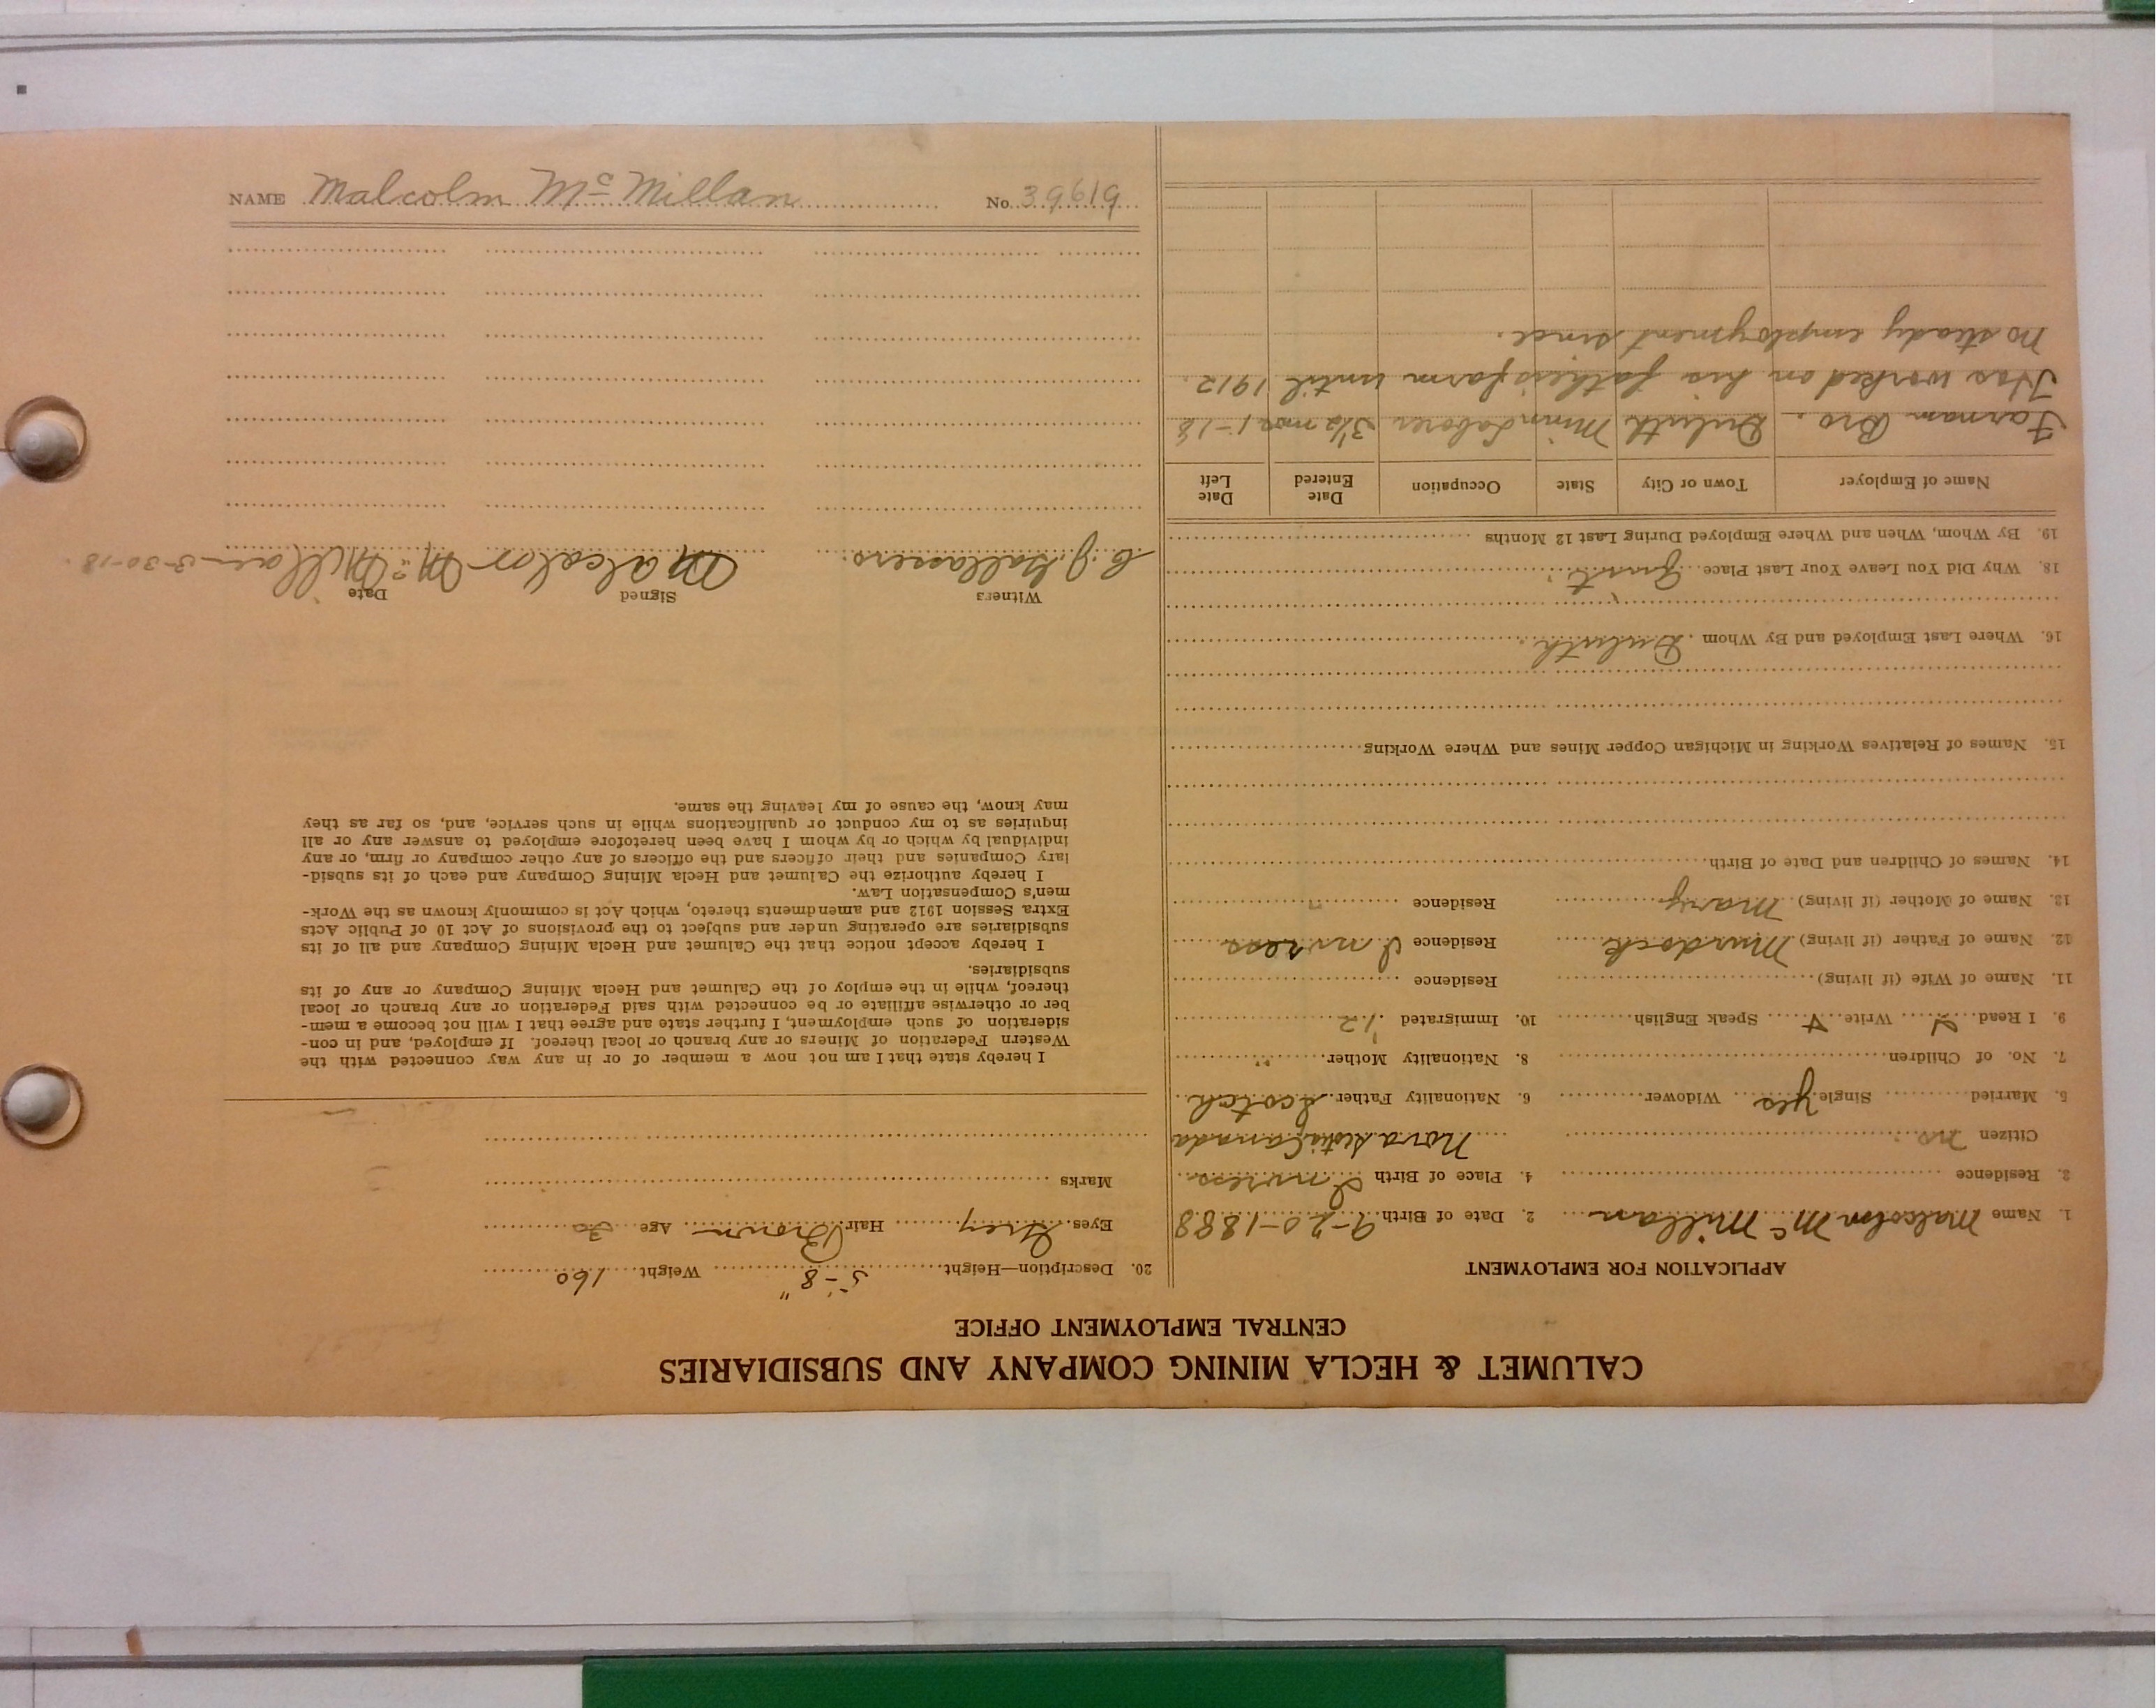 CALUMET & HECLA MINING COMPANY AND SUBSIDIARIES
CENTRAL EMPLOYMENT OFFICE
APPLICATION FOR EMPLOYMENT
1. Name Malcolm Mc Millan 2. Date of Birth 9-20-1888
3. Residence 4. Place of Birth Invress
Citizen no Nova Scotia Canada
5. Married Single yes Widower 6. Nationality Father Scotch
7. No. of Children 8. Nationality Mother "
9. I Read Write Speak English 10. Immigrated '12
11. Name of Wife (if living) Residence
12. Name of Father (if living) Murdock Residence Invress
13. Name of Mother (if living) Mary Residence "
14. Names of Children and Date of Birth
15. Names of Relatives Working in Michigan Copper Mines and Where Working
16. Where Last Employed and By Whom Duluth
18. Why Did You Leave Your Last Place Quit
19. By Whom, When and Where Employed During Last 12 Months
Name of Employer Town or City State Occupation Date Entered Date Left
Farnam Bro. Duluth Minn Laborer 3½ mos 1-18
Has worked on his fathers farm until 1912.
No steady employment since.
20. Description—Height 5'-8" Weight 160
Eyes Grey Hair Brown Age 30
Marks
I hereby state that I am not now a member of or in any way connected with the
Western Federation of Miners or any branch or local thereof. If employed, and in con-
sideration of such employment, I further state and agree that I will not become a mem-
ber or otherwise affiliate or be connected with said Federation or any branch or local
thereof, while in the employ of the Calumet and Hecla Mining Company or any of its
subsidiaries.
I hereby accept notice that the Calumet and Hecla Mining Company and all of its
subsidiaries are operating under and subject to the provisions of Act 10 of Public Acts
Extra Session 1912 and amendments thereto, which Act is commonly known as the Work-
men's Compensation Law.
I hereby authorize the Calumet and Hecla Mining Company and each of its subsid-
iary Companies and their officers and the officers of any other company or firm, or any
individual by which or by whom I have been heretofore employed to answer any or all
inquiries as to my conduct or qualifications while in such service, and, so far as they
may know, the cause of my leaving the same.
Witness Signed Date
Malcolm Mc Millan 3-30-18.
NAME Malcolm Mc Millan No. 39619